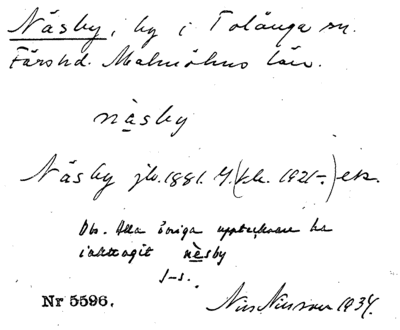 Näsby, by i Tolånga sn.
Färs hd. Malmöhus län.
näsby
Näsby jb. 1881. G. (kh. 1921-) ek.
Obs. Alla övriga upptecknare ha
iakttagit nèsby
J-s.
Nr 5596. Nils Nilsson 1934.